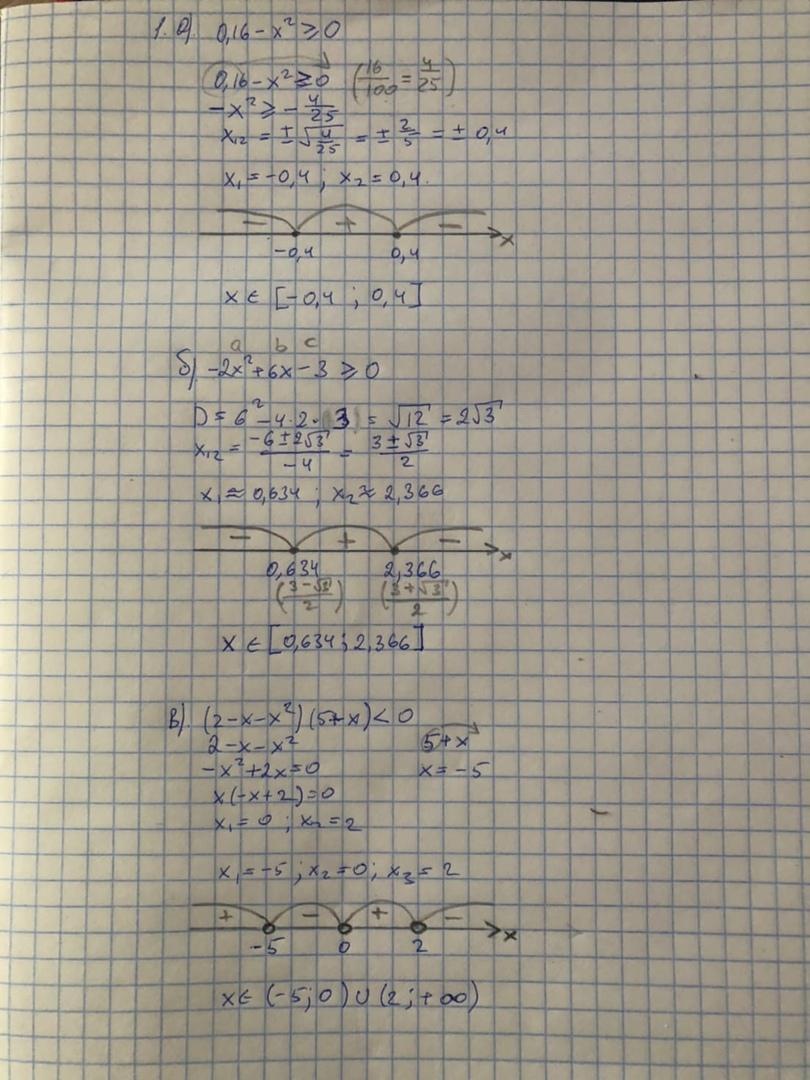 1. а). 0,16 - x² ≥ 0
0,16 - x² ≥ 0 (16/100 = 4/25)
-x² ≥ -4/25
x₁,₂ = ±√(4/25) = ±2/5 = ±0,4
x₁ = -0,4 ; x₂ = 0,4.
- + - x
-0,4 0,4
x ∈ [-0,4 ; 0,4]
a b c
б). -2x² + 6x - 3 ≥ 0
D = 6² - 4·2· 3 = √12 = 2√3
x₁,₂ = (-6 ± 2√3)/(-4) = (3 ± √3)/2
x₁ ≈ 0,634 ; x₂ ≈ 2,366
- + - x
0,634 2,366
((3-√3)/2) ((3+√3)/2)
x ∈ [0,634 ; 2,366]
в). (2-x-x²)(5+x) < 0
2-x-x² 5+x
-x²+2x=0 x=-5
x(-x+2)=0
x₁=0 ; x₂=2
x₁=-5 ; x₂=0 ; x₃=2
+ - + - x
-5 0 2
x ∈ (-5;0) ∪ (2;+∞)